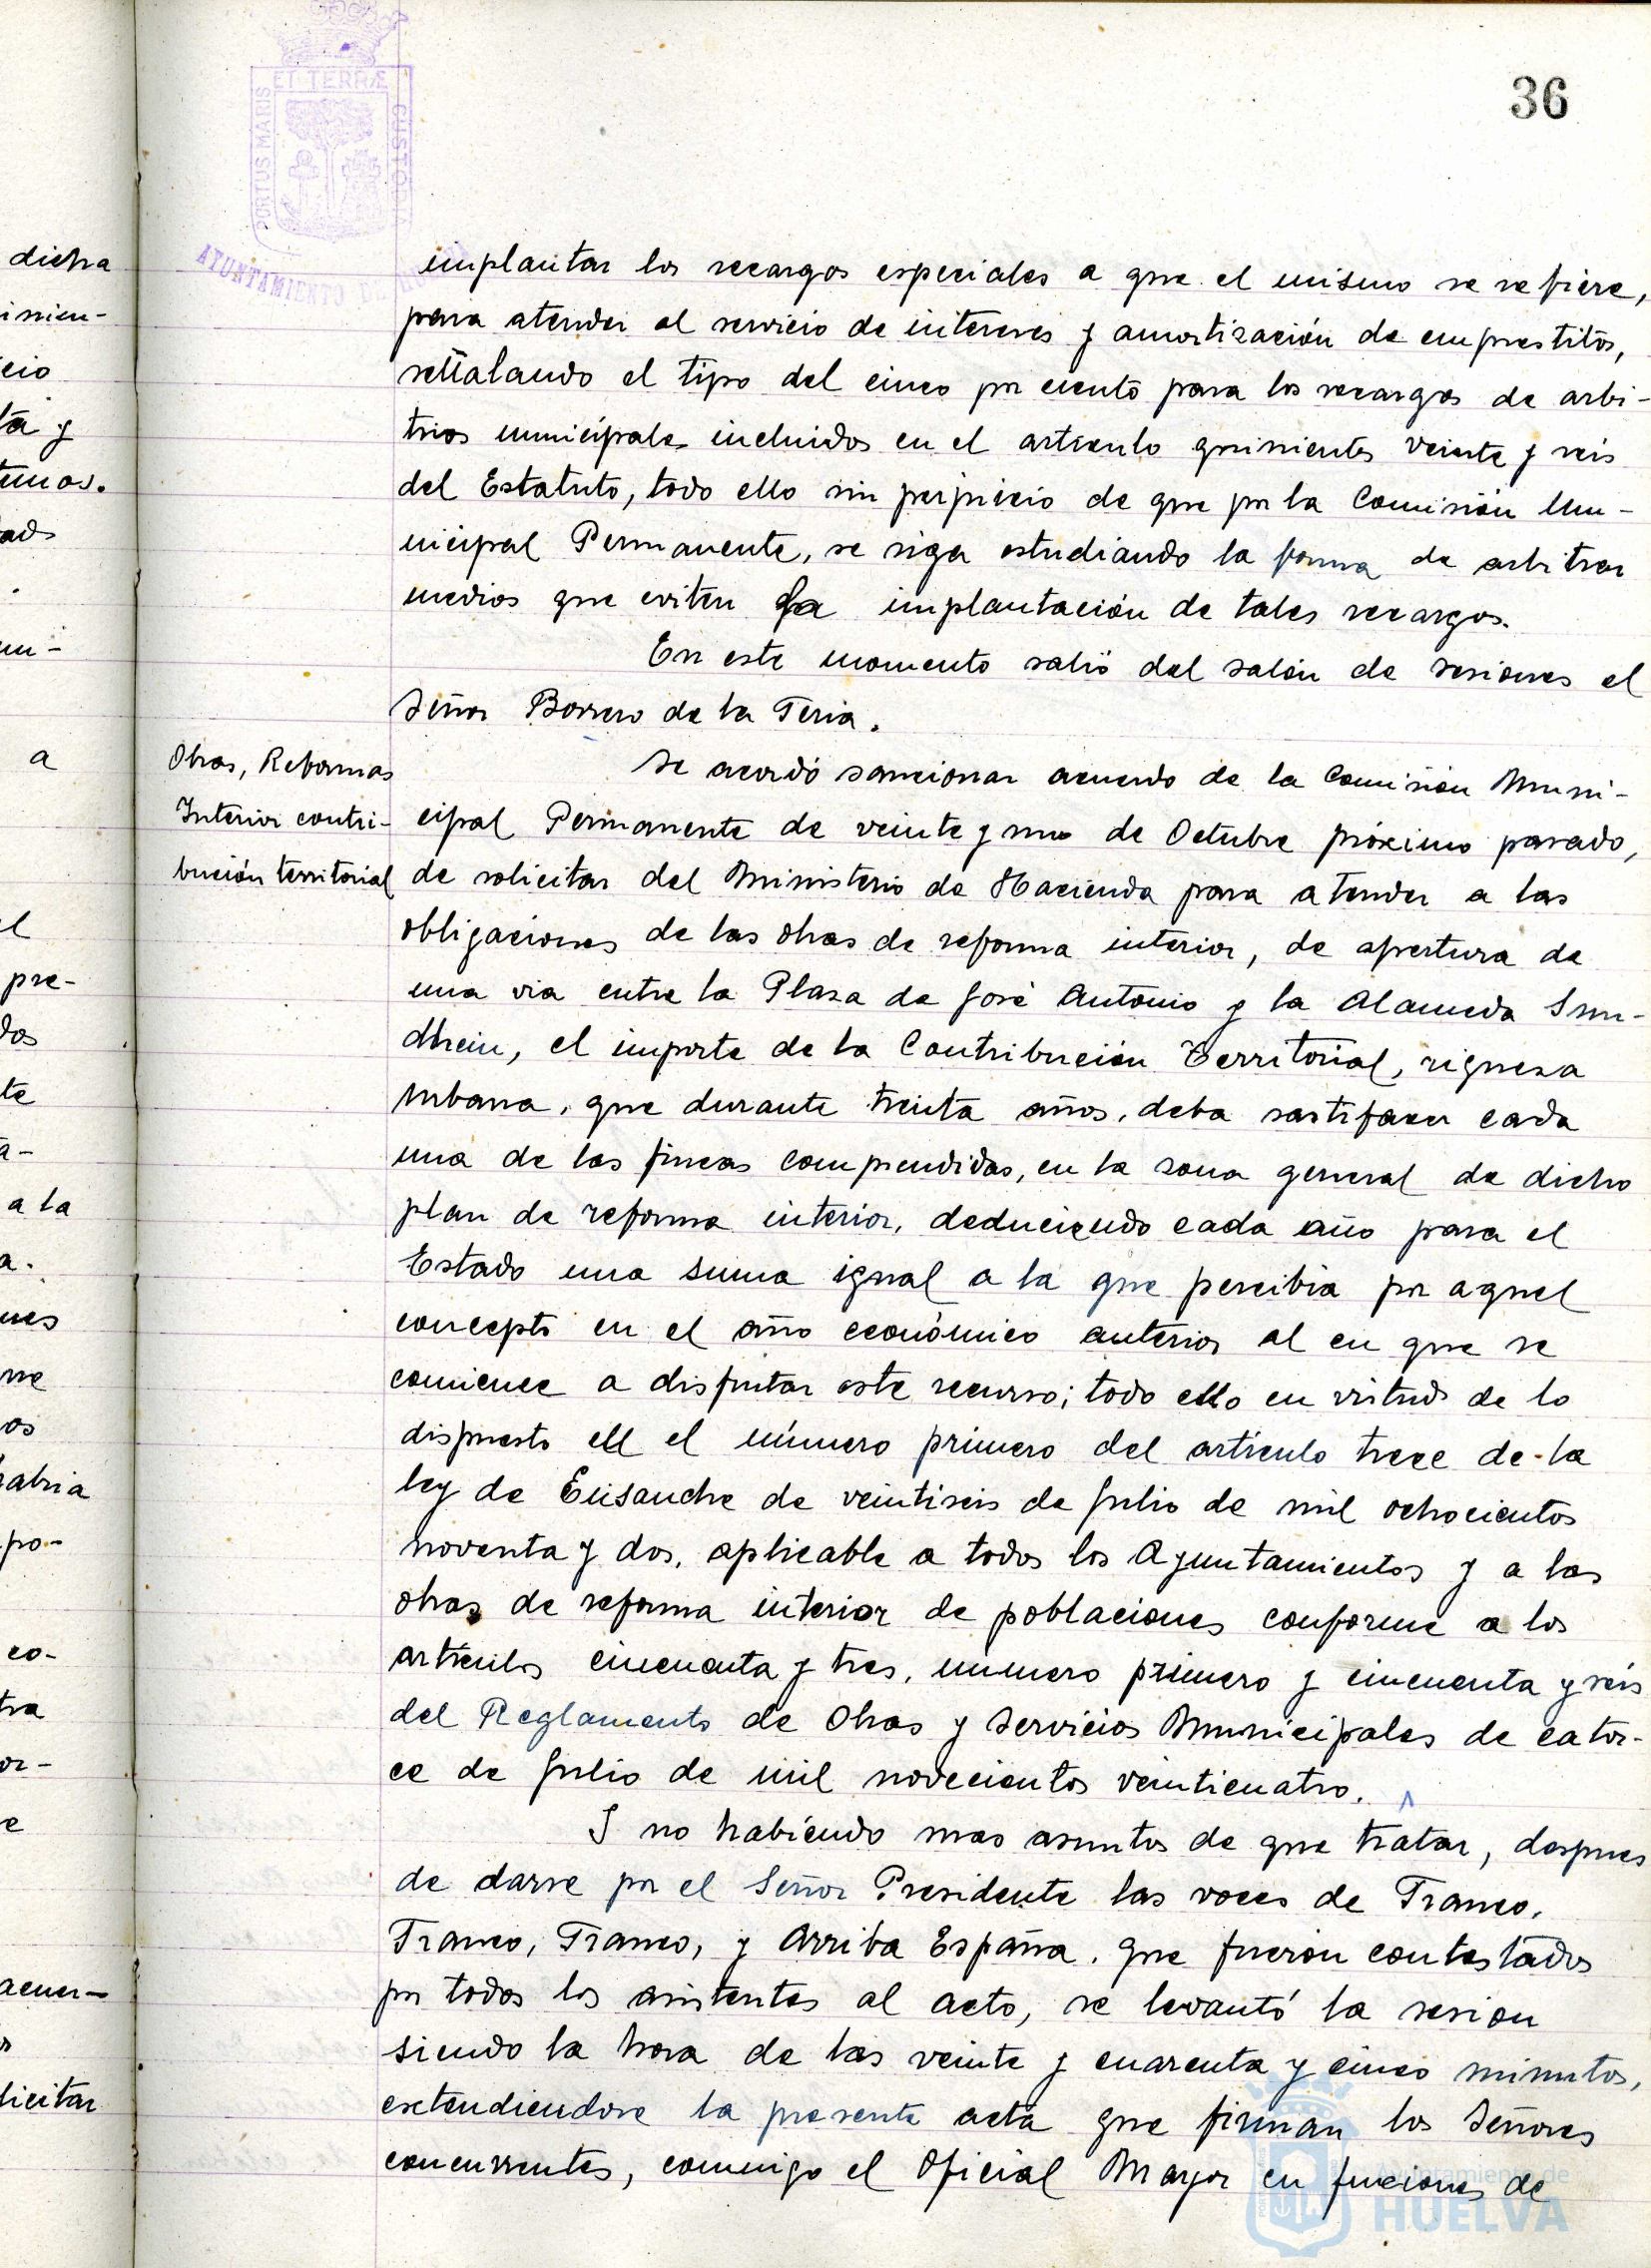 36
PORTUS MARIS
ET TERRÆ
CUSTODIA
AYUNTAMIENTO DE HUELVA
implantar los recargos especiales a que el mismo se refiere,
para atender al servicio de intereses y amortización de emprestitos,
señalando el tipo del cinco por ciento para los recargos de arbi-
trios municipales incluidos en el articulo quinientos veinte y seis
del Estatuto, todo ello sin perjuicio de que por la Comisión Mu-
nicipal Permanente, se siga estudiando la forma de arbitrar
medios que eviten la implantación de tales recargos.
En este momento salió del salón de sesiones el
Señor Borrero de la Feria.
Obras, Reformas
Interior contri-
bución territorial
Se acordó sancionar acuerdo de la Comisión Muni-
cipal Permanente de veinte y uno de Octubre próximo pasado,
de solicitar del Ministerio de Hacienda para atender a las
obligaciones de las obras de reforma interior, de apertura de
una via entre la Plaza de José Antonio y la Alameda Sun-
dhein, el importe de la Contribución Territorial, riqueza
urbana, que durante treinta años, deba sastifacer cada
una de las fincas comprendidas, en la zona general de dicho
plan de reforma interior, deduciendo cada año para el
Estado una suma igual a la que percibia por aquel
concepto en el año económico anterior al en que se
comience a disfrutar este recurso; todo ello en virtud de lo
dispuesto en el número primero del articulo trece de la
ley de Ensanche de veintiseis de Julio de mil ochocientos
noventa y dos, aplicable a todos los Ayuntamientos y a las
obras de reforma interior de poblaciones conforme a los
articulos cincuenta y tres, numero primero y cincuenta y seis
del Reglamento de Obras y Servicios Municipales de cator-
ce de Julio de mil novecientos veinticuatro.
Y no habiendo mas asuntos de que tratar, despues
de darse por el Señor Presidente las voces de Franco,
Franco, Franco, y Arriba España, que fueron contestados
por todos los asistentes al acto, se levantó la sesion
siendo la hora de las veinte y cuarenta y cinco minutos,
extendiendose la presente acta que firman los Señores
concurrentes, conmigo el Oficial Mayor en funciones de
Ayuntamiento de
HUELVA
dicha
cio
ta y
a
pre-
dos
te
a la
a.
po-
co-
tra
or-
acuer-
licitar